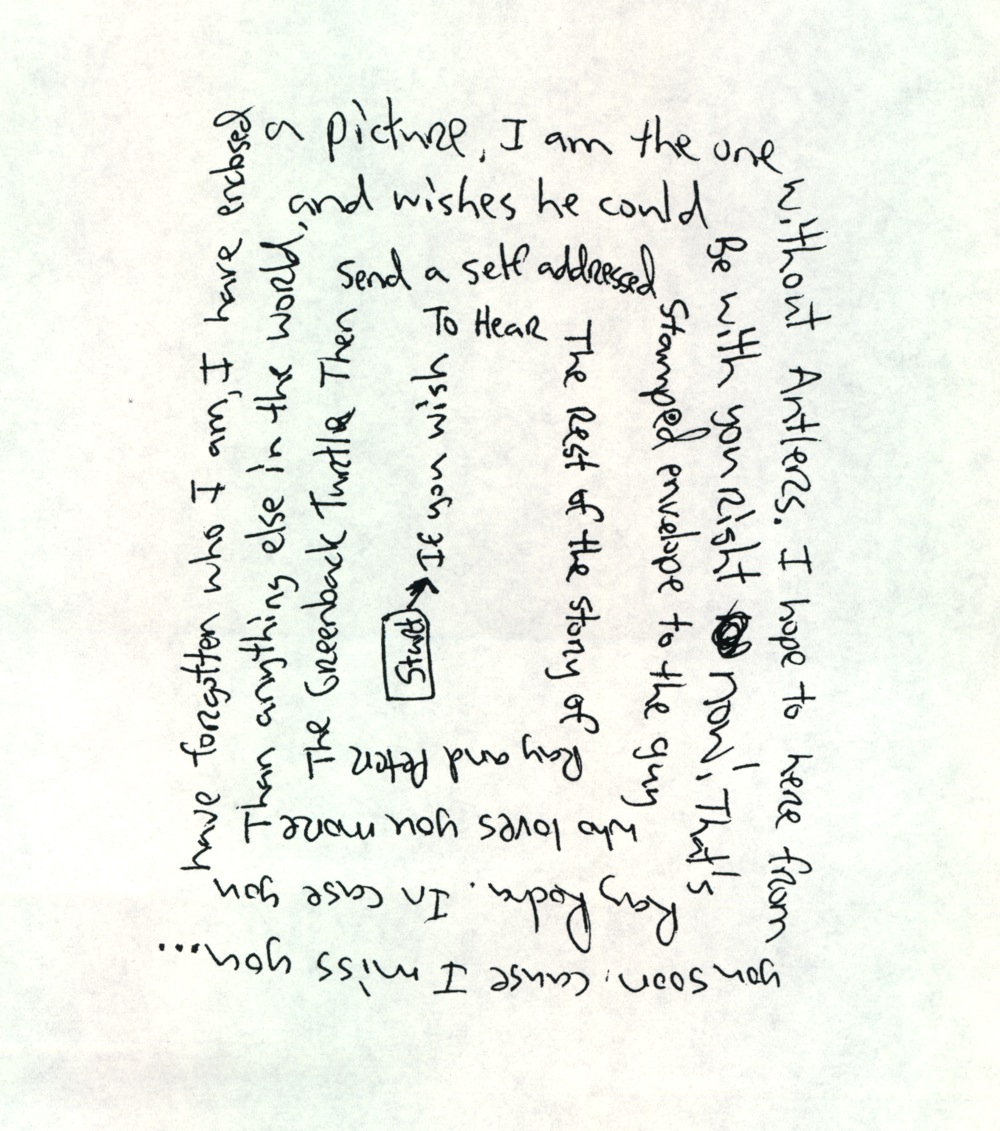 Start
If you wish
To Hear
The Rest of the story of
Ray and Peter
The Greenback Turtle Then
send a self addressed
stamped envelope to the guy
who loves you more
Than anything else in the world,
and wishes he could
Be with you right now! That's
Ray Rodr. In case you
have forgotten who I am, I have enclosed
a picture, I am the one
without Antlers. I hope to here from
you soon, cause I miss you...